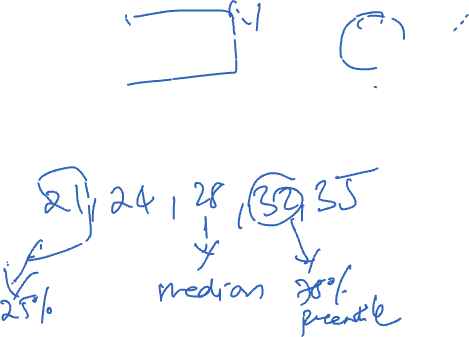 21, 24, 28, 32, 35
25% median 75%
percentile